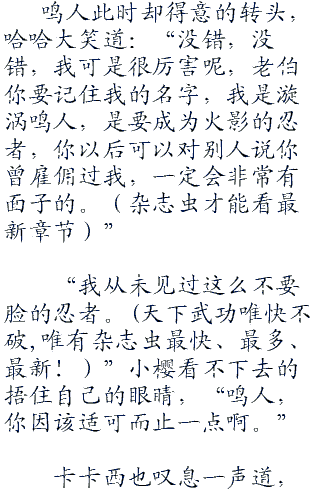 鸣人此时却得意的转头，
哈哈大笑道：“没错，没
错，我可是很厉害呢，老伯
你要记住我的名字，我是漩
涡鸣人，是要成为火影的忍
者，你以后可以对别人说你
曾雇佣过我，一定会非常有
面子的。（杂志虫才能看最
新章节）”
“我从未见过这么不要
脸的忍者。(天下武功唯快不
破,唯有杂志虫最快、最多、
最新！）”小樱看不下去的
捂住自己的眼睛，“鸣人，
你因该适可而止一点啊。”
卡卡西也叹息一声道，